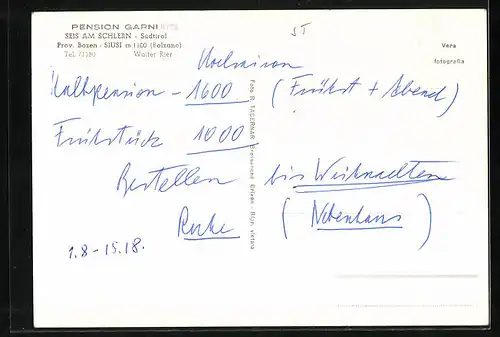 PENSION GARNI
SEIS AM SCHLERN - Südtirol
Prov. Bozen - SIUSI m 1100 (Bolzano)
Tel. 71180 Walter Rier
ST
Vera
fotografia
Hochsaison
Halbpension - 1600 (Frühst + Abend)
Frühstück 1000
Bestellen bis Weihnachten
(Nebenhaus)
1.8 - 15.8.
Foto R. TAGERNAR, Bressanone Brixen - Ripr. vietata